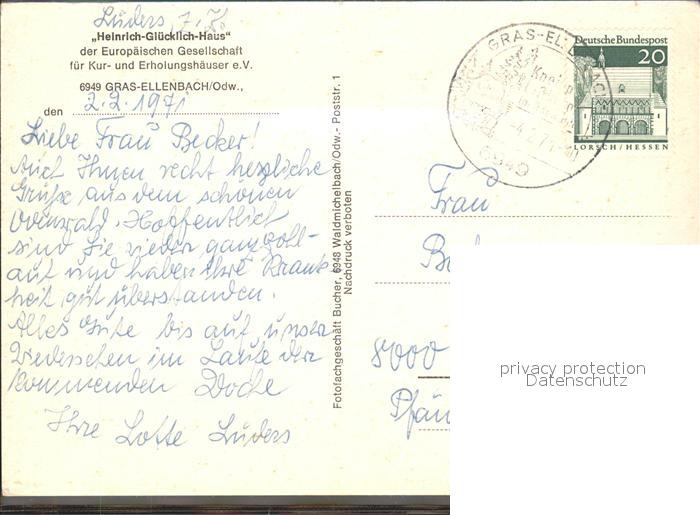 Lüders, z. Z.
„Heinrich-Glücklich-Haus"
der Europäischen Gesellschaft
für Kur- und Erholungshäuser e.V.
6949 GRAS-ELLENBACH/Odw.,
den 2.2.1971
Liebe Frau Becker!
Auch Ihnen recht herzliche
Grüße aus dem schönen
Odenwald. Hoffentlich
sind Sie wieder ganz voll-
auf und haben Ihre Krank
heit gut überstanden.
Alles Gute bis auf unser
Wiedersehen im Laufe der
kommenden Woche
Ihre Lotte Lüders
Fotofachgeschäft Bucher, 6948 Waldmichelbach/Odw. - Poststr. 1
Nachdruck verboten
GRAS-ELLENBACH
6949
Deutsche Bundespost
20
LORSCH / HESSEN
Frau
Be
8000
Pfän
privacy protection
Datenschutz